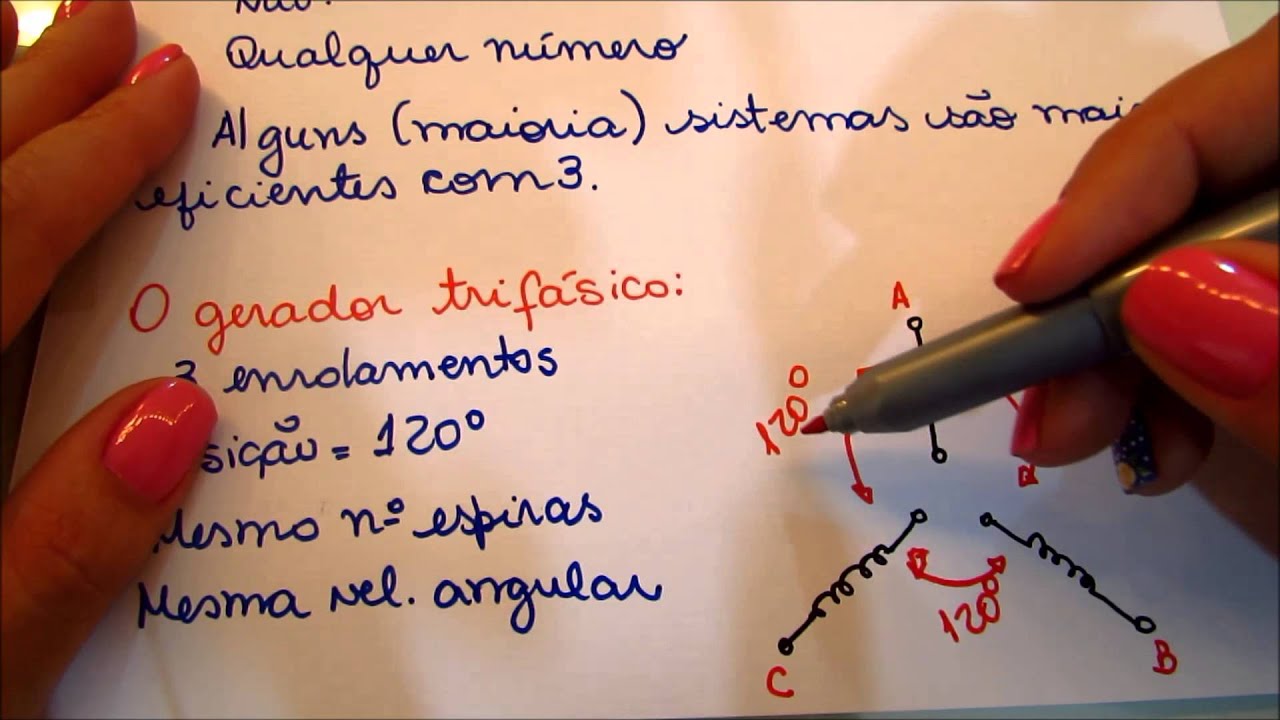 Não.
Qualquer número
Alguns (maioria) sistemas são mai
eficientes com 3.
O gerador trifásico:
3 enrolamentos
sição = 120º
Mesmo nº espiras
Mesma vel. angular
A
120º
120º
C
B